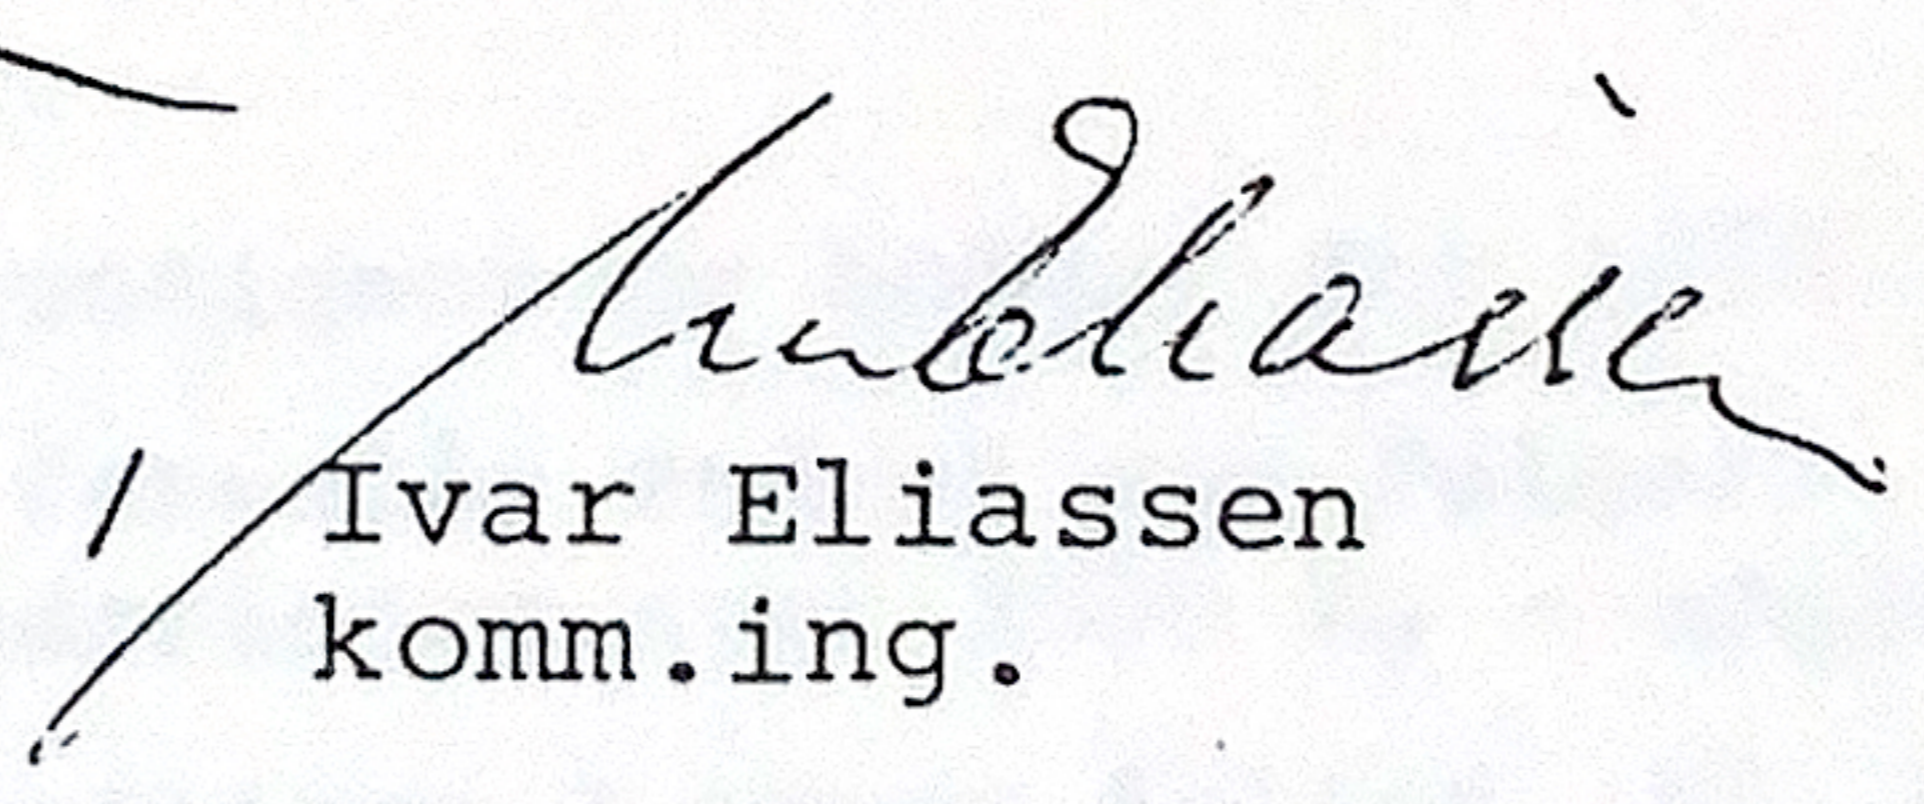 Ivar Eliassen
Ivar Eliassen
komm.ing.